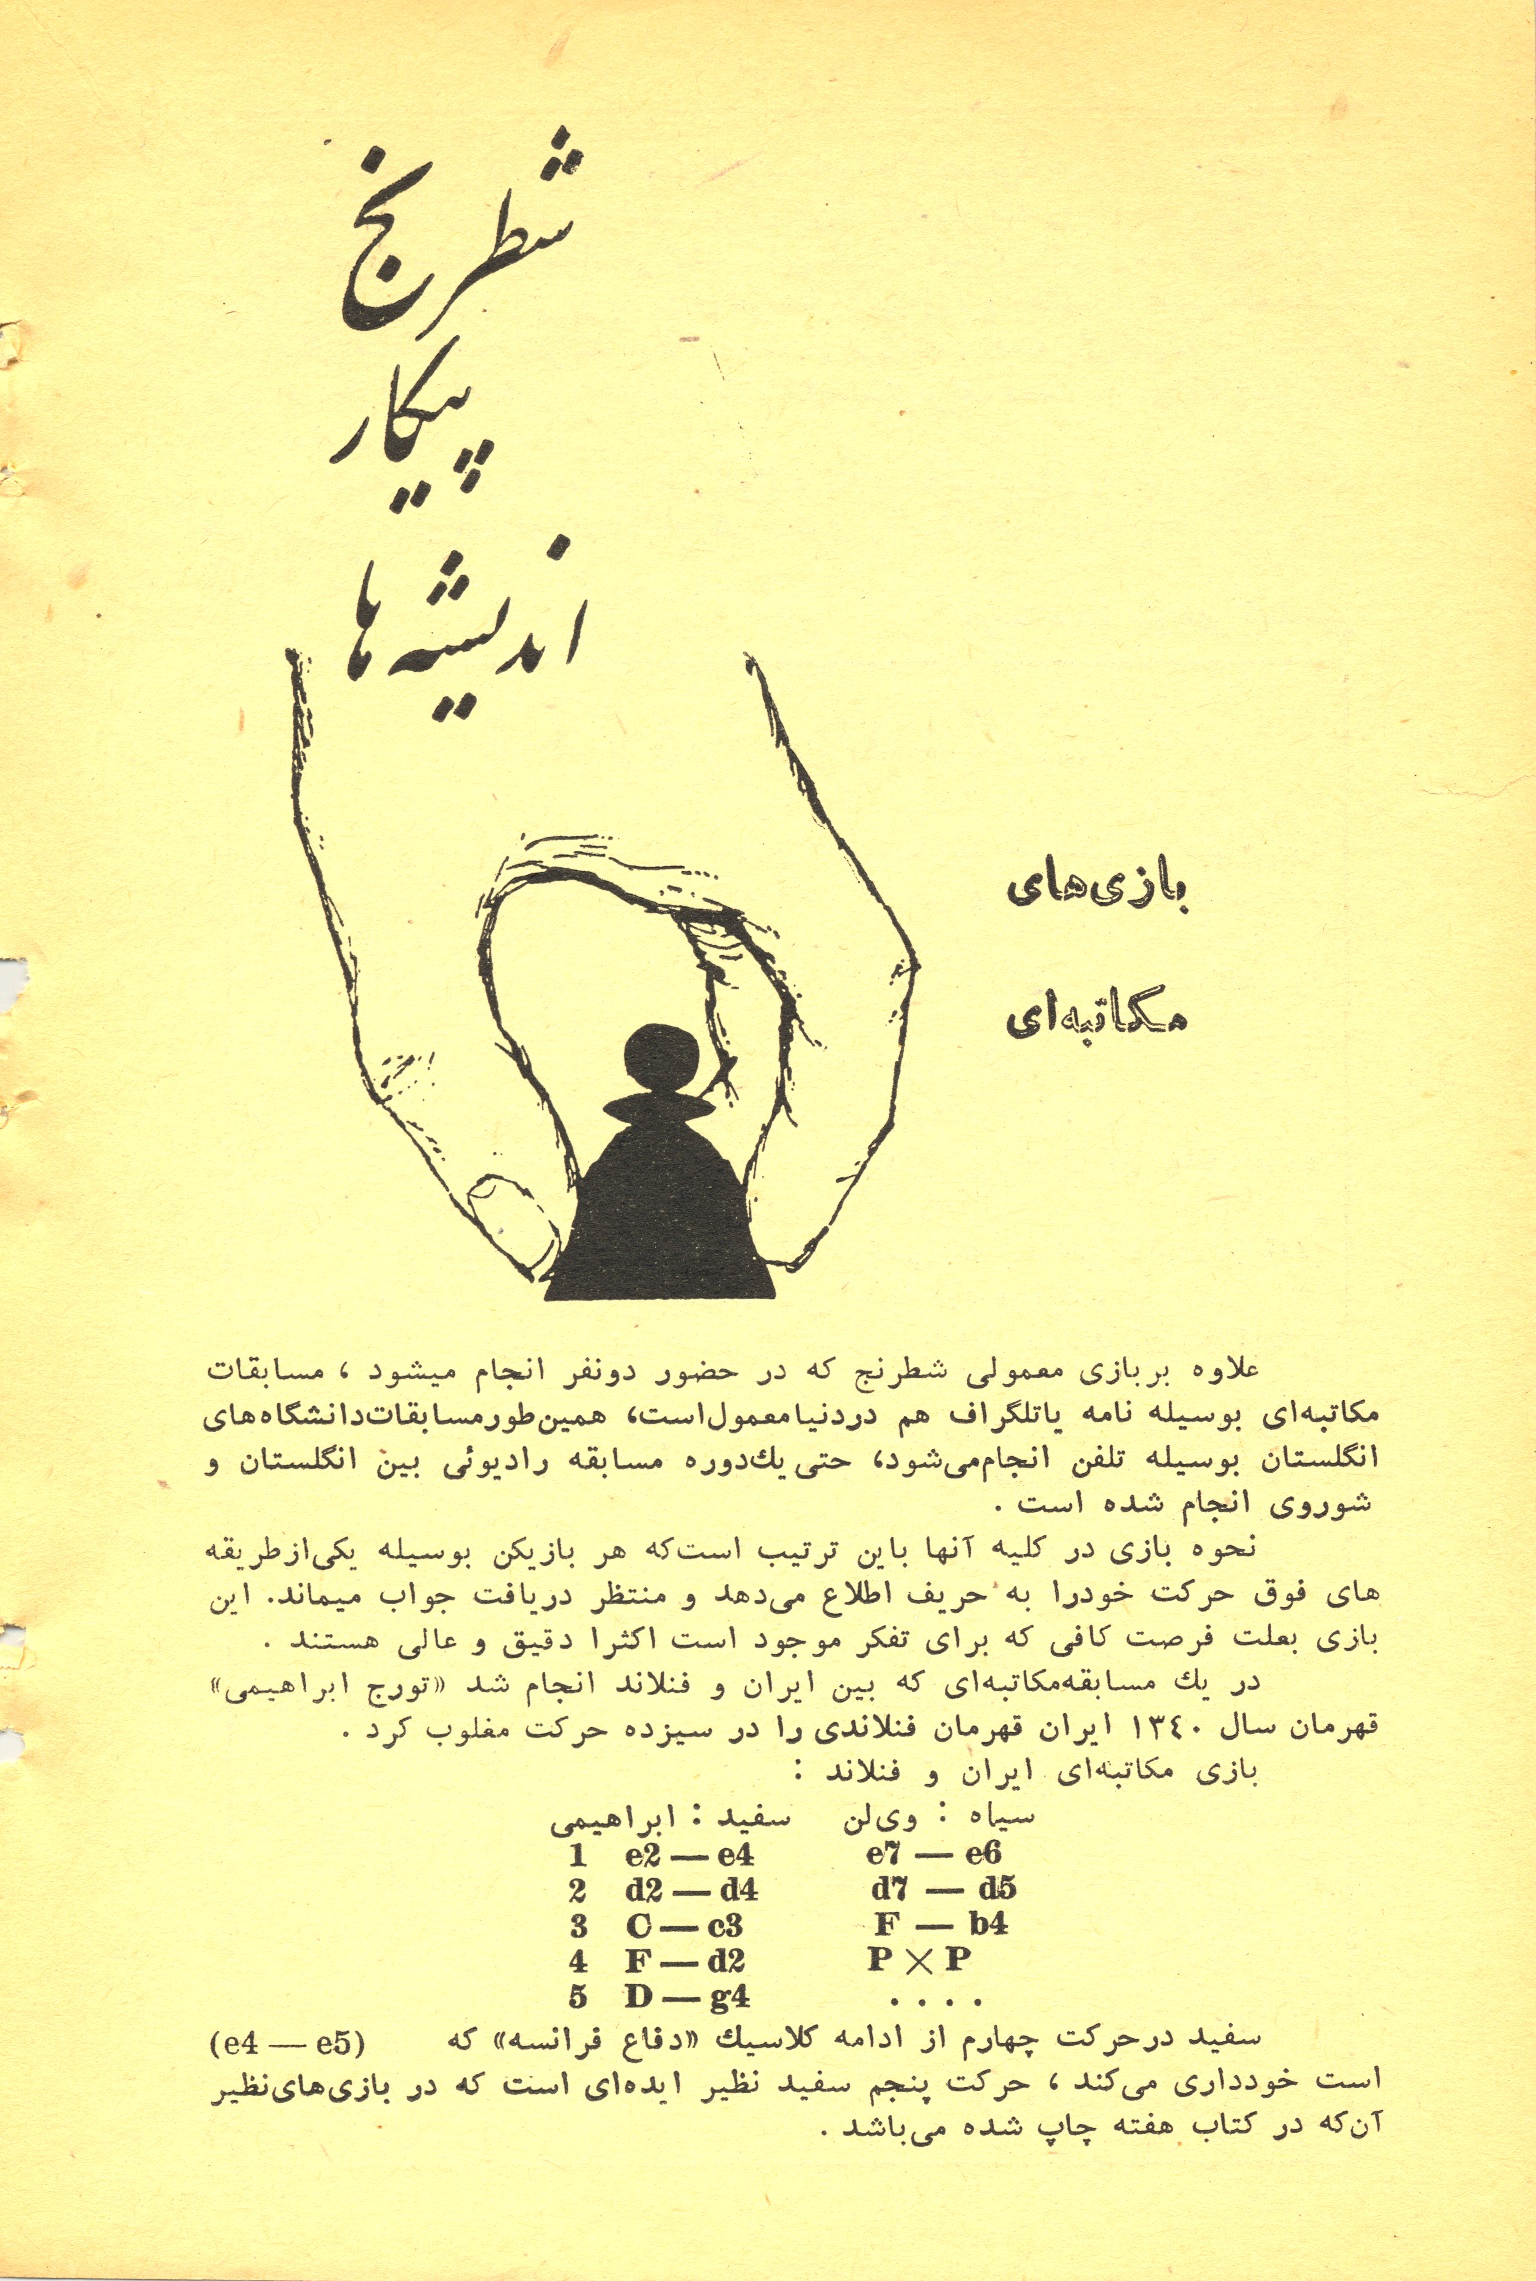 شطرنج
پیکار
اندیشه‌ها
بازی‌های
مکاتبه‌ای
علاوه بر بازی معمولی شطرنج که در حضور دونفر انجام میشود ، مسابقات
مکاتبه‌ای بوسیله نامه یاتلگراف هم دردنیامعمول‌است، همین‌طورمسابقات‌دانشگاه‌های
انگلستان بوسیله تلفن انجام‌می‌شود، حتی یك‌دوره مسابقه رادیوئی بین انگلستان و
شوروی انجام شده است .
نحوه بازی در کلیه آنها باین ترتیب است‌که هر بازیکن بوسیله یکی‌ازطریقه
های فوق حرکت خودرا به حریف اطلاع می‌دهد و منتظر دریافت جواب میماند. این
بازی بعلت فرصت کافی که برای تفکر موجود است اکثرا دقیق و عالی هستند .
در یك مسابقه‌مکاتبه‌ای که بین ایران و فنلاند انجام شد «تورج ابراهیمی»
قهرمان سال ١٣٤٠ ایران قهرمان فنلاندی را در سیزده حرکت مغلوب کرد .
بازی مکاتبه‌ای ایران و فنلاند :
سفید : ابراهیمی سیاه : وی‌لن
1 e2 — e4 e7 — e6
2 d2 — d4 d7 — d5
3 C — c3 F — b4
4 F — d2 P × P
5 D — g4 . . . .
سفید درحرکت چهارم از ادامه کلاسیك «دفاع فرانسه» که (e4 — e5)
است خودداری می‌کند ، حرکت پنجم سفید نظیر ایده‌ای است که در بازی‌های‌نظیر
آن‌که در کتاب هفته چاپ شده می‌باشد .